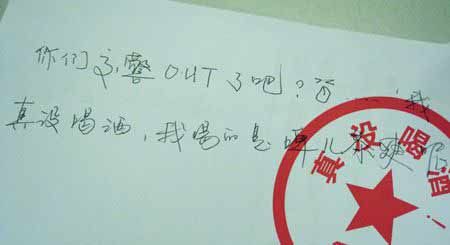 你们交警OUT了吧?……,我
真没喝酒,我喝的是啤儿茶爽
真没喝酒!